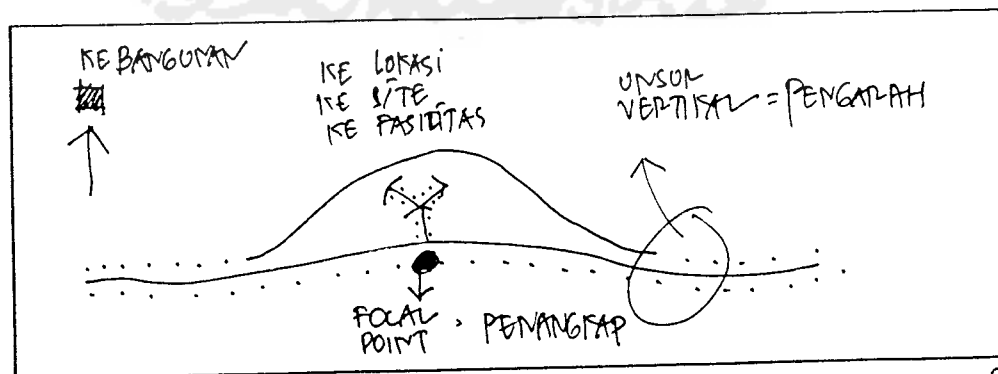 KE BANGUNAN
KE LOKASI
KE SITE
KE FASILITAS
UNSUR
VERTIKAL = PENGARAH
FOCAL
POINT , PENANGKAP